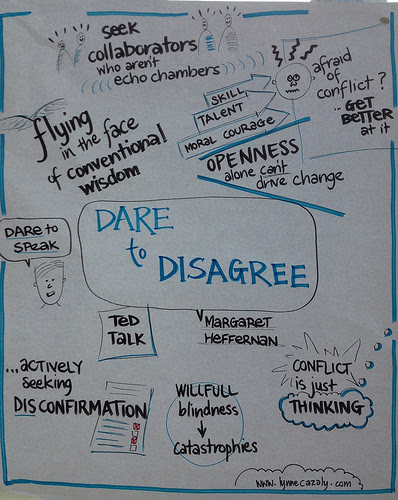 seek
collaborators
who aren't
echo chambers
afraid
of
conflict?
...GET
BETTER
at it
SKILL
TALENT
MORAL COURAGE
flying
in the face
of conventional
wisdom
OPENNESS
alone can't
drive change
DARE to
SPEAK
DARE
to
DISAGREE
TED
TALK
MARGARET
HEFFERNAN
...actively
seeking
DISCONFIRMATION
WILLFULL
blindness
catastrophies
CONFLICT
is just
THINKING
www.lynnecazaly.com